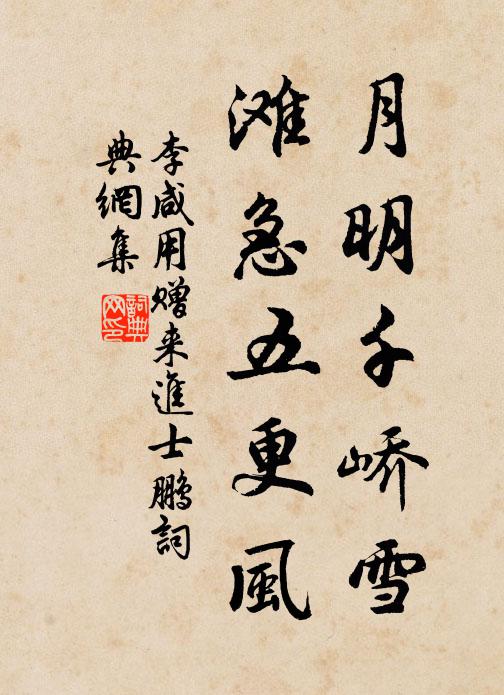 月明千峤雪
滩急五更風
李咸用赠来進士鵬詞
典網集
詞典
网印